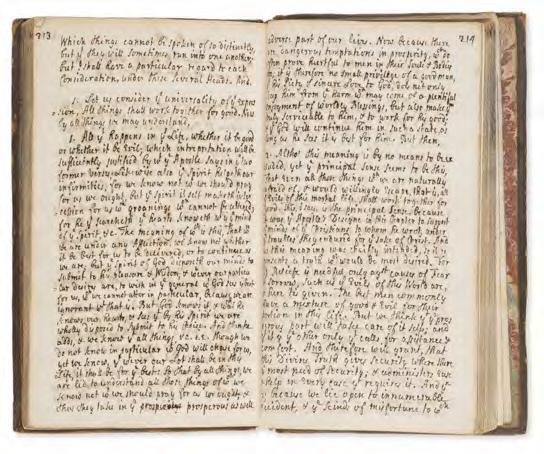 213
Which things cannot be spoken of so distinctly,
but yt they will sometimes run into one another;
but I shall have a particular regard to each
Consideration, under these Several Heads. And,
1. Let us consider ye universality of ye expres
sion, All things shall work together for good. Now
by all things we may understand,
1. All yt happens in ys Life, whether it be good
or whether it be Evil, which interpretation will be
sufficiently justified by wt ye Apostle Says in ye two
former verses, likewise also ye Spirit helpeth our
infirmities, for we know not wt we should pray
for as we ought, but ye Spirit it self maketh inter
cession for us wth groanings wch cannot be uttered;
for he yt searcheth ye hearts knoweth wt is ye mind
of ye Spirit &c. The meaning of wch is this, That wn
we are under any Affliction, we know not whether
it be best for us to be delivered, or to continue as
we are, but ye Spirit of God disposeth our minds to
Submit to his pleasure & Wisdom, & wtever our particu
lar desires are, to wish in ye general yt God see what
for us, wch we cannot utter in particular, because we are
ignorant of that. But God knows it, & who
knows our hearts, & sees yt by his Spirit we are
wholly disposed to Submit to his choice. And
adds, & we know yt all things &c. i.e. though we
do not know in particular wt God will choose for us,
yet we know, yt wtever our lot shall be in this
Life, it shall be for ye best: So that by all things, we
are to understand all those things wch we
know not wt we should pray for as we ought, &
this they take in ye prosperous as well
214
adverse part of our lives. Now because there
are dangerous temptations in prosperity, wch do
often prove hurtful to men in their Souls & Bodies
it is therefore no small privilege of a good man,
his Piety & sincere Love to God, doth not only
keep him from ye harm wch may come of a plentiful
enjoyment of worldly Blessings, but also makes
only serviceable to him, & to work for his good;
yt God will continue him in such a state, as
long as he sees it is best for him. But then,
2. Altho' this meaning is by no means to be ex
cluded, yet ye principal Sense seems to be this,
that even all those things wch we are naturally
afraid of, & would willingly escape, that is, all
Evils of this mortal life, shall work together for
good. this, I say, is the principal Sense, because
ye Apostles Designe in this Chapter to support
minds of ye Christians to whom he wrote, under
troubles they endured for ye sake of Christ. And
this meaning was chiefly intended, so it
presents a truth wch would be most desired. For
Relief is needful only agst causes of Fear
Sorrow, such as ye Evils of this World are,
Men commonly
have a mixture of good & Evil for their
portion in this life. But we think ye pros
perous part will take care of it self, and
yt ye other only calls for assistance &
comfort. And therefore will grant, that
this Divine Truth gives security where there
most need of security; & administers
help in every case yt requires it. And
because we lie open to innumerable
accidents, & ye kinds of misfortune to wch